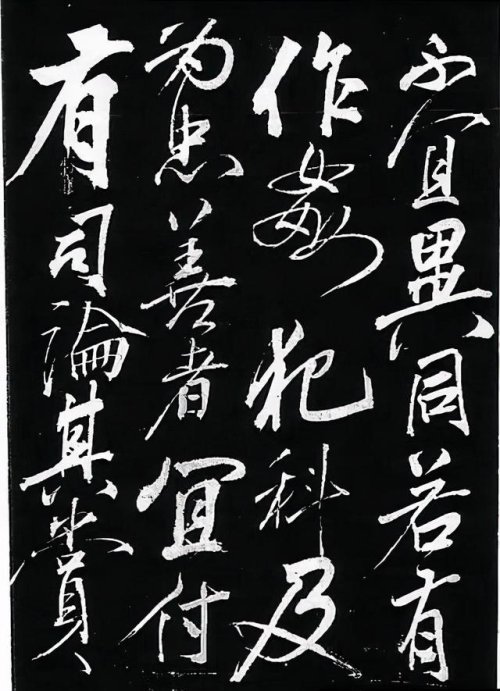 不宜異同若有
作姦犯科及
為忠善者宜付
有司論其賞、